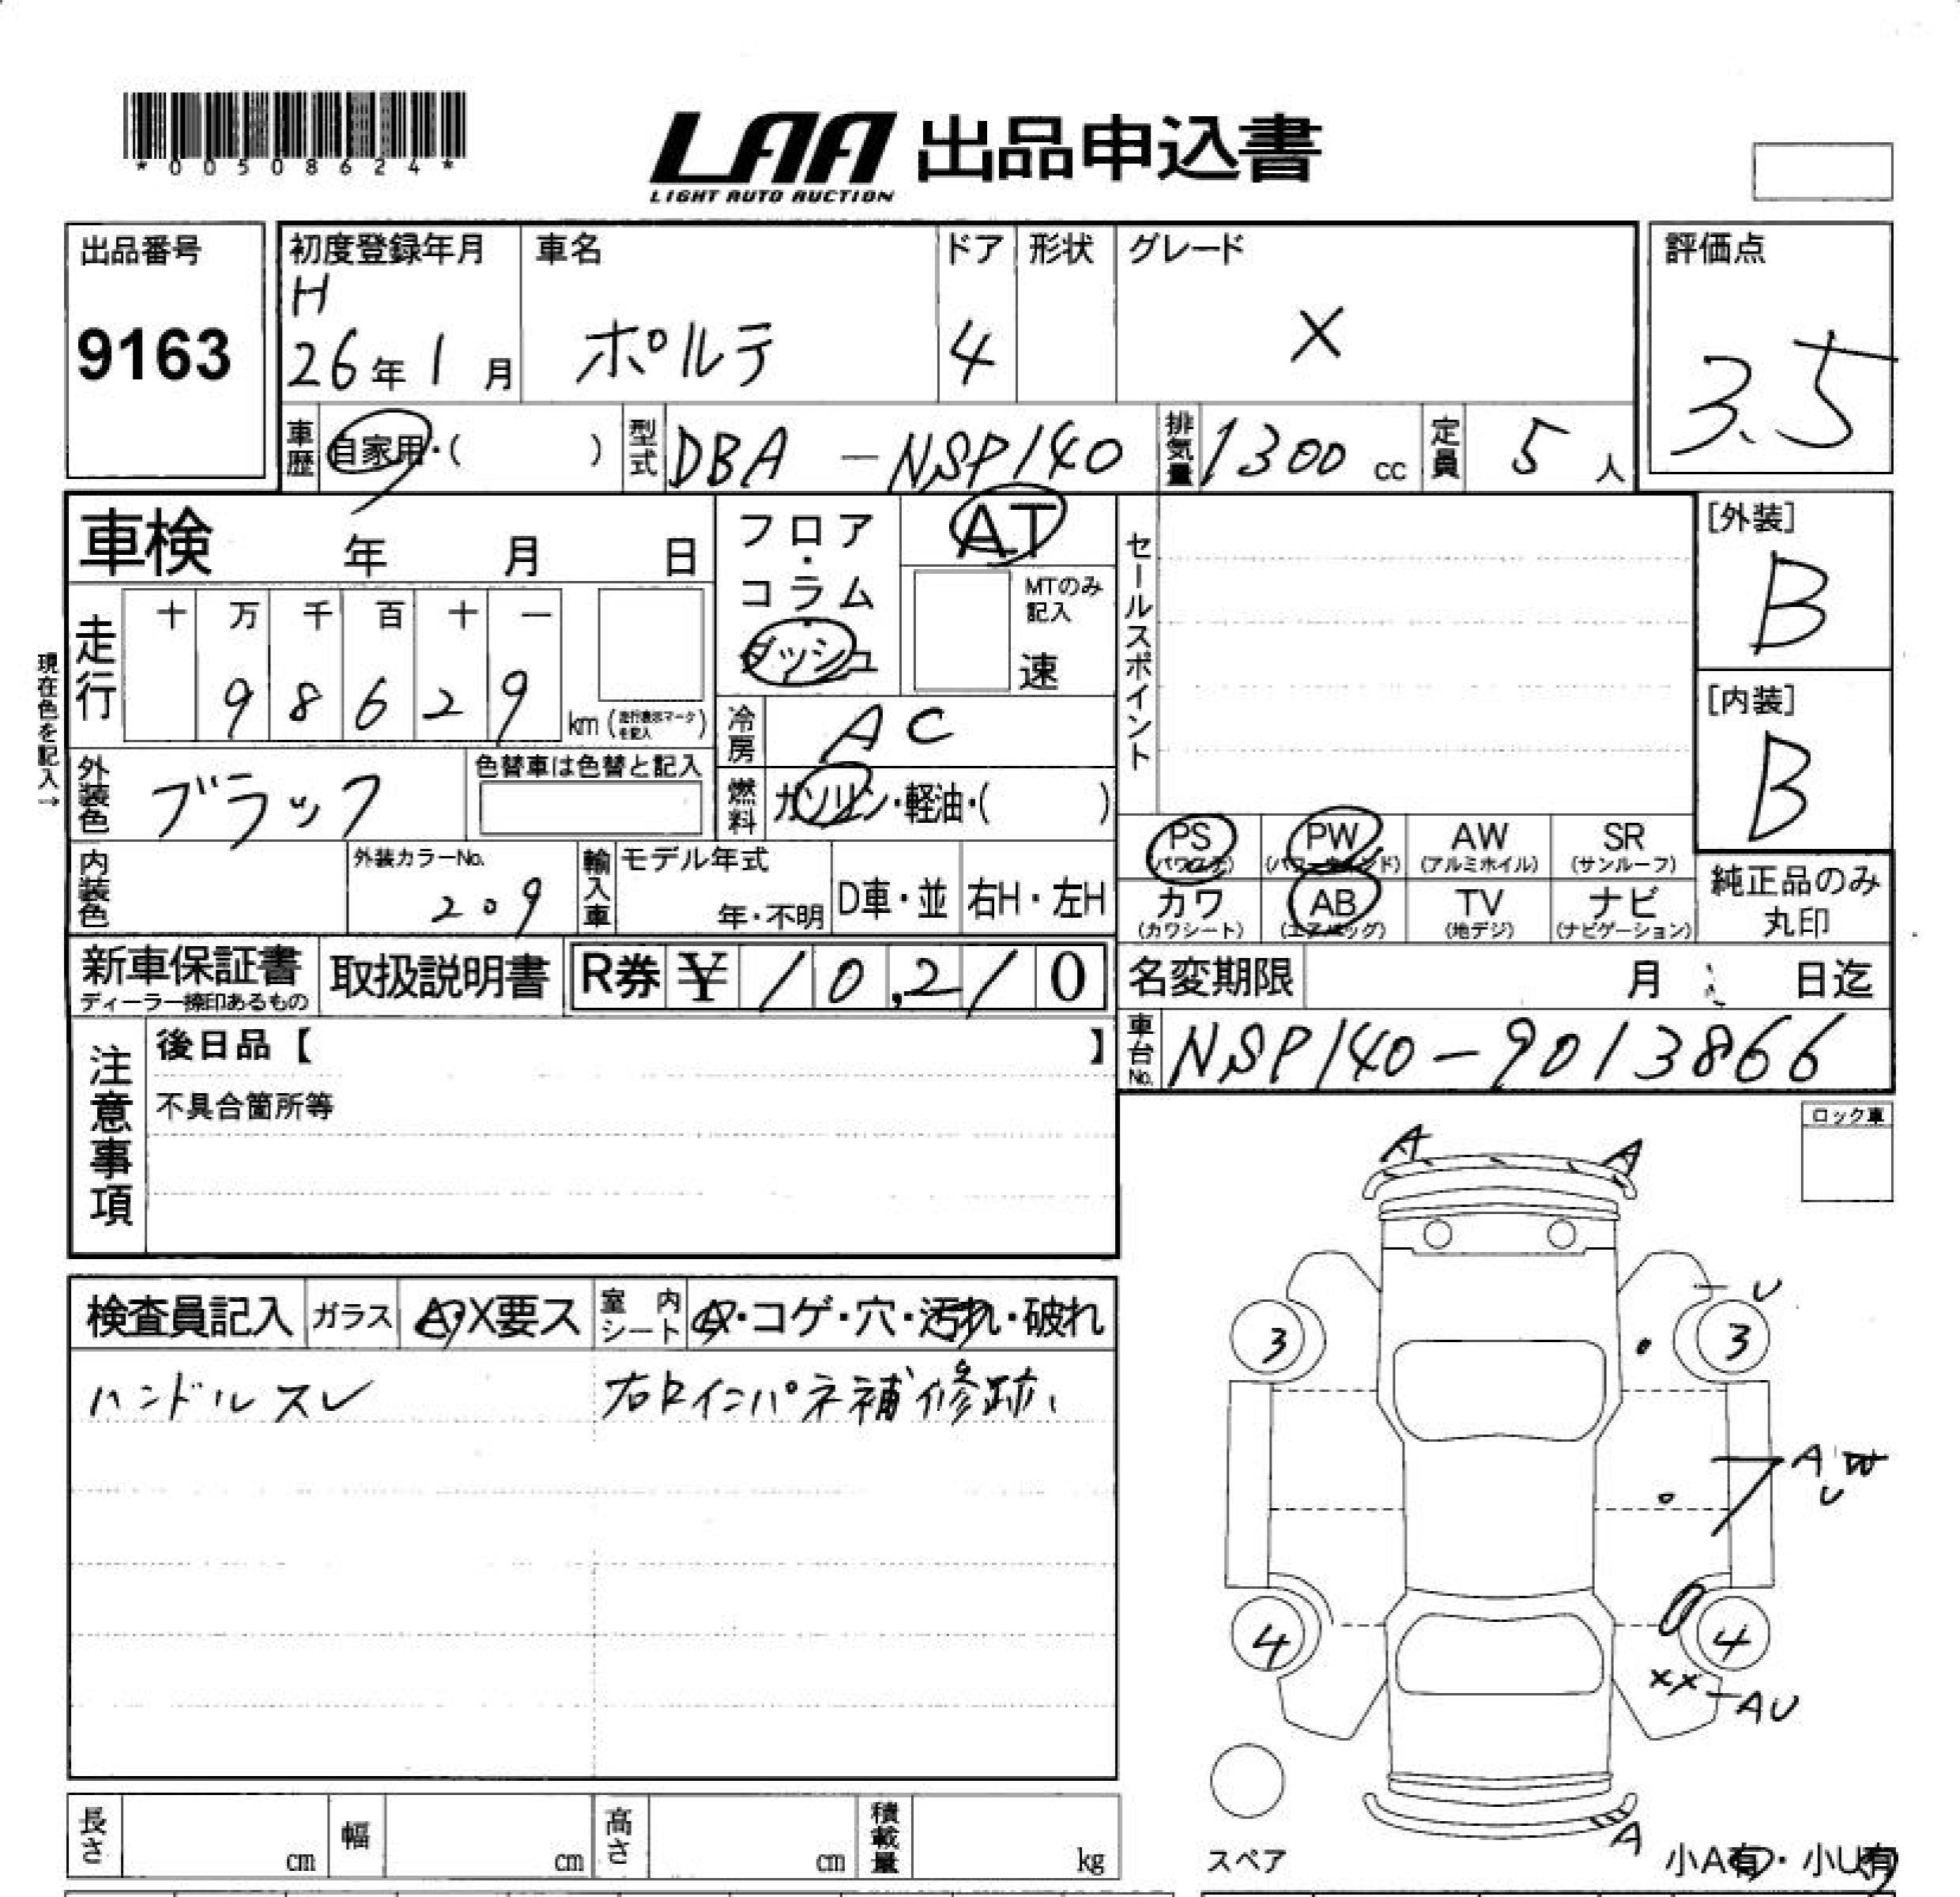 *00508624*
LAA 出品申込書
LIGHT AUTO AUCTION
出品番号
9163
初度登録年月
H
26年1月
車名
ポルテ
ドア
4
形状
グレード
X
評価点
3.5
車歴
自家用・( )
型式
DBA - NSP140
排気量
1300 cc
定員
5 人
車検 年 月 日
フロア・コラム
ダッシュ
AT
MTのみ記入
速
セールスポイント
[外装]
B
[内装]
B
現在色を記入→
走行
十 万 千 百 十 一
9 8 6 2 9
km (走行表示マークを記入)
冷房
AC
外装色
ブラック
色替車は色替と記入
燃料
ガソリン・軽油・( )
内装色
外装カラーNo.
209
輸入車
モデル年式
年・不明
D車・並
右H・左H
PS
(パワステ)
PW
(パワーウインド)
AW
(アルミホイル)
SR
(サンルーフ)
カワ
(カワシート)
AB
(エアバッグ)
TV
(地デジ)
ナビ
(ナビゲーション)
純正品のみ
丸印
新車保証書
ディーラー捺印あるもの
取扱説明書
R券 ¥ 10,210
名変期限 月 日迄
車台No.
NSP140-9013866
注意事項
後日品【 】
不具合箇所等
ロック車
検査員記入
ガラス
A・X要ス
室内シート
A・コゲ・穴・汚れ・破れ
ハンドルスレ
右Fインパネ補修跡
A A
U
3 3
A W
U
4 4
XX AU
A
スペア
小A有・小U有
長さ cm
幅 cm
高さ cm
積載量 kg